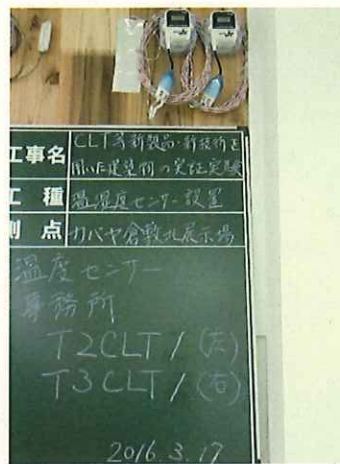 工事名 CLT等新製品・新技術を
用いた建築物の実証実験
工種 温湿度センサー設置
測点 カバヤ倉敷北展示場
温度センサー
事務所
T2CLT/(左)
T3CLT/(右)
2016.3.17